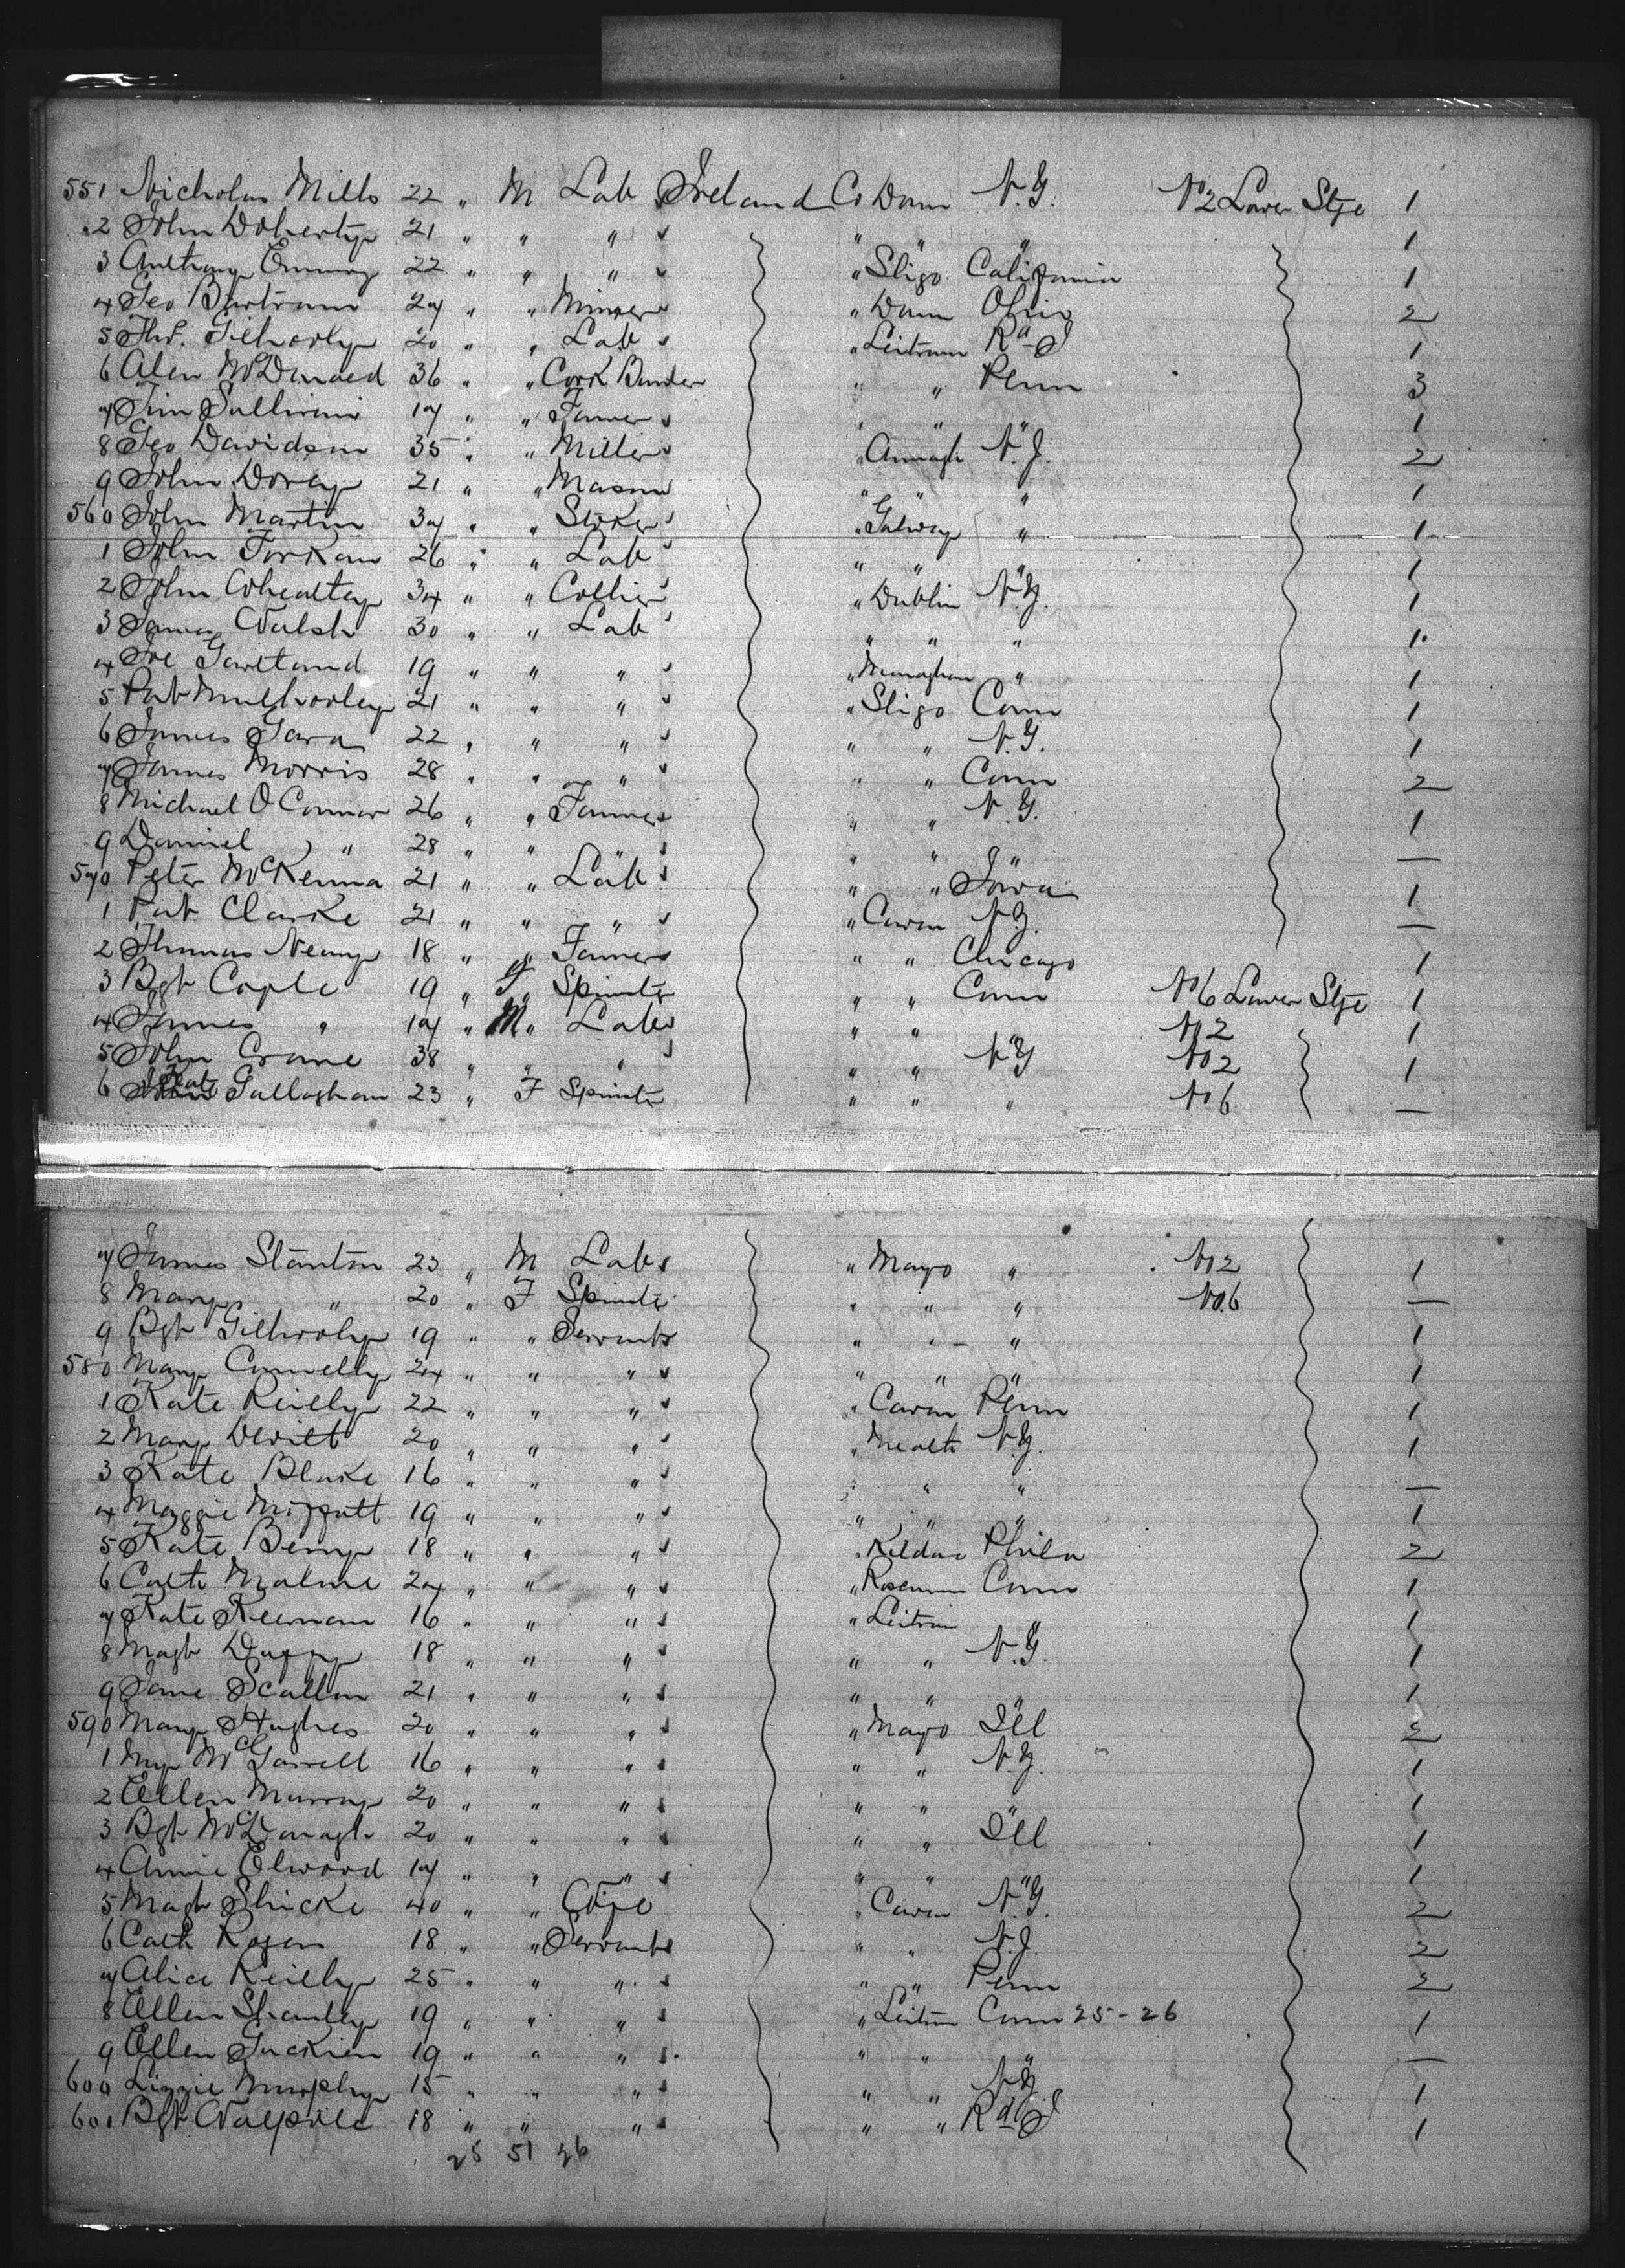 551 Nicholas Mills 22 " M Lab Ireland Co Down N.Y. No 2 Lower Stge 1
2 John Doherty 21 " " " " " " 1
3 Anthony 22 " " " " Sligo California 1
4 Geo Bertram 27 " " Miner " Down Ohio 2
5 Thos. Gilhooly 20 " " Lab " Leitrim Rd I 1
6 Alex McDonald 36 " " Cork " " Penn 3
7 Tim Sullivan 17 " " Farmer " " " 1
8 Geo Davidson 35 " " Miller " Armagh N.J. 2
9 John Dorey 21 " " Mason " " " 1
560 John Martin 37 " " Stoker " Galway " 1
1 John Forkan 26 " " Lab " " " 1
2 John Whealtey 34 " " Collier " Dublin N.Y. 1
3 James Walsh 30 " " Lab " " " 1
4 Joe Gartland 19 " " " " Monaghan " 1
5 Pat Mulhooley 21 " " " " Sligo Conn 1
6 James Gara 22 " " " " " N.Y. 1
7 James Morris 28 " " " " " Conn 2
8 Michael O Connor 26 " " Farmer " " N.Y. 1
9 Daniel " 28 " " " " " " —
570 Peter McKenna 21 " " Lab " " Iowa 1
1 Pat Clarke 21 " " " " Cavan N.Y. —
2 Thomas Neary 18 " " Farmer " " Chicago 1
3 Bgt Coyle 19 " F " Spinster " " Conn No 6 Lower Stge 1
4 James " 17 " M " Lab " " No 2 1
5 John Crane 38 " " " " " N.Y No 2 1
6 Kate Gallagham 23 " F Spinster " " " No 6 —
7 James Stanton 23 " M Lab " Mayo " No 2 1
8 Mary " 20 " F Spinster " " " No. 6 —
9 Bgt Gilhooly 19 " " Servants " " " 1
580 Mary Connelly 24 " " " " " " 1
1 Kate Reielly 22 " " " " Cavan Penn 1
2 Mary Devitt 20 " " " " Meath N.Y. 1
3 Kate Blake 16 " " " " " " —
4 Maggie Moffatt 19 " " " " " " 1
5 Kate Berry 18 " " " " Kildare Phila 2
6 Cath Malone 24 " " " " Roscommon Conn 1
7 Kate Keernan 16 " " " " Leitrim " 1
8 Magt Duffy 18 " " " " " N.Y. 1
9 Jane Scallon 21 " " " " " " 1
590 Mary Hughes 20 " " " " Mayo Ill 2
1 My McGarrell 16 " " " " " N.Y. 1
2 Ellen Murray 20 " " " " " " 1
3 Bgt McDonagh 20 " " " " " Ill 1
4 Annie Elwood 17 " " " " " " 1
5 Magt Shicke 40 " " Wife " Cavan N.Y. 2
6 Cath Rogan 18 " " Servants " " N.J. 2
7 Alice Reielly 25 " " " " " Penn 2
8 Ellen Stanley 19 " " " " Leitrim Conn 25-26 1
9 Ellen Guckien 19 " " " " " " —
600 Lizzie Murphy 15 " " " " " N.Y. 1
601 Bgt 18 " " " " " Rd I 1
25 51 26